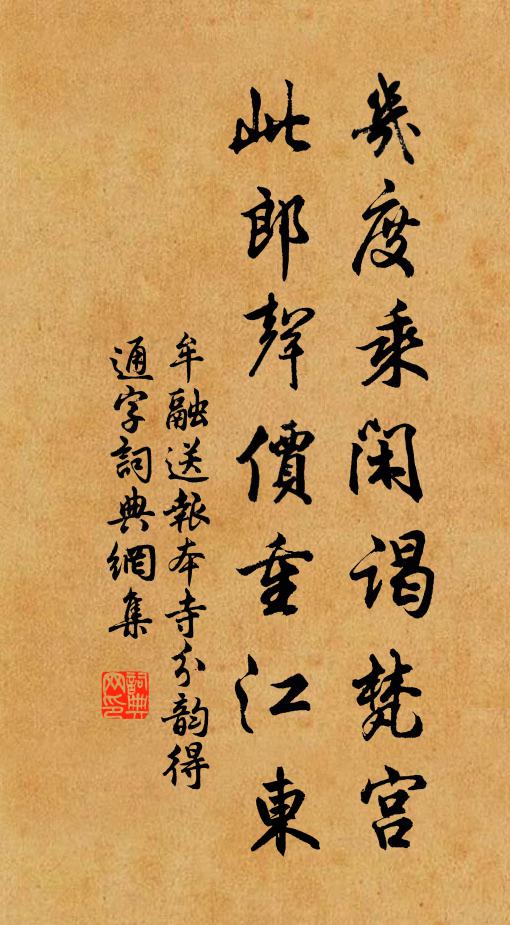 幾度乘閑謁梵宮
此郎聲價重江東
牟融送報本寺分韵得
通字詞典網集
詞典
网印